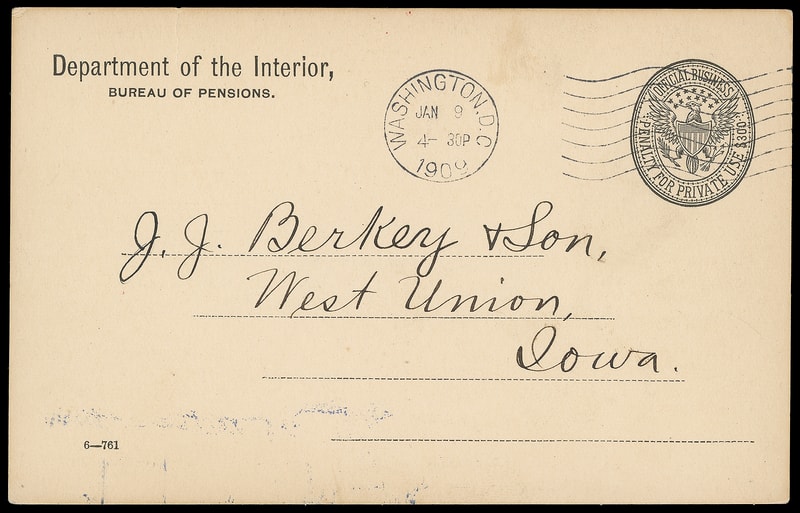 Department of the Interior,
BUREAU OF PENSIONS.
WASHINGTON, D.C.
JAN 9
4- 30P
1909
OFFICIAL BUSINESS
PENALTY FOR PRIVATE USE $300.
J. J. Berkey & Son,
West Union,
Iowa.
6—761